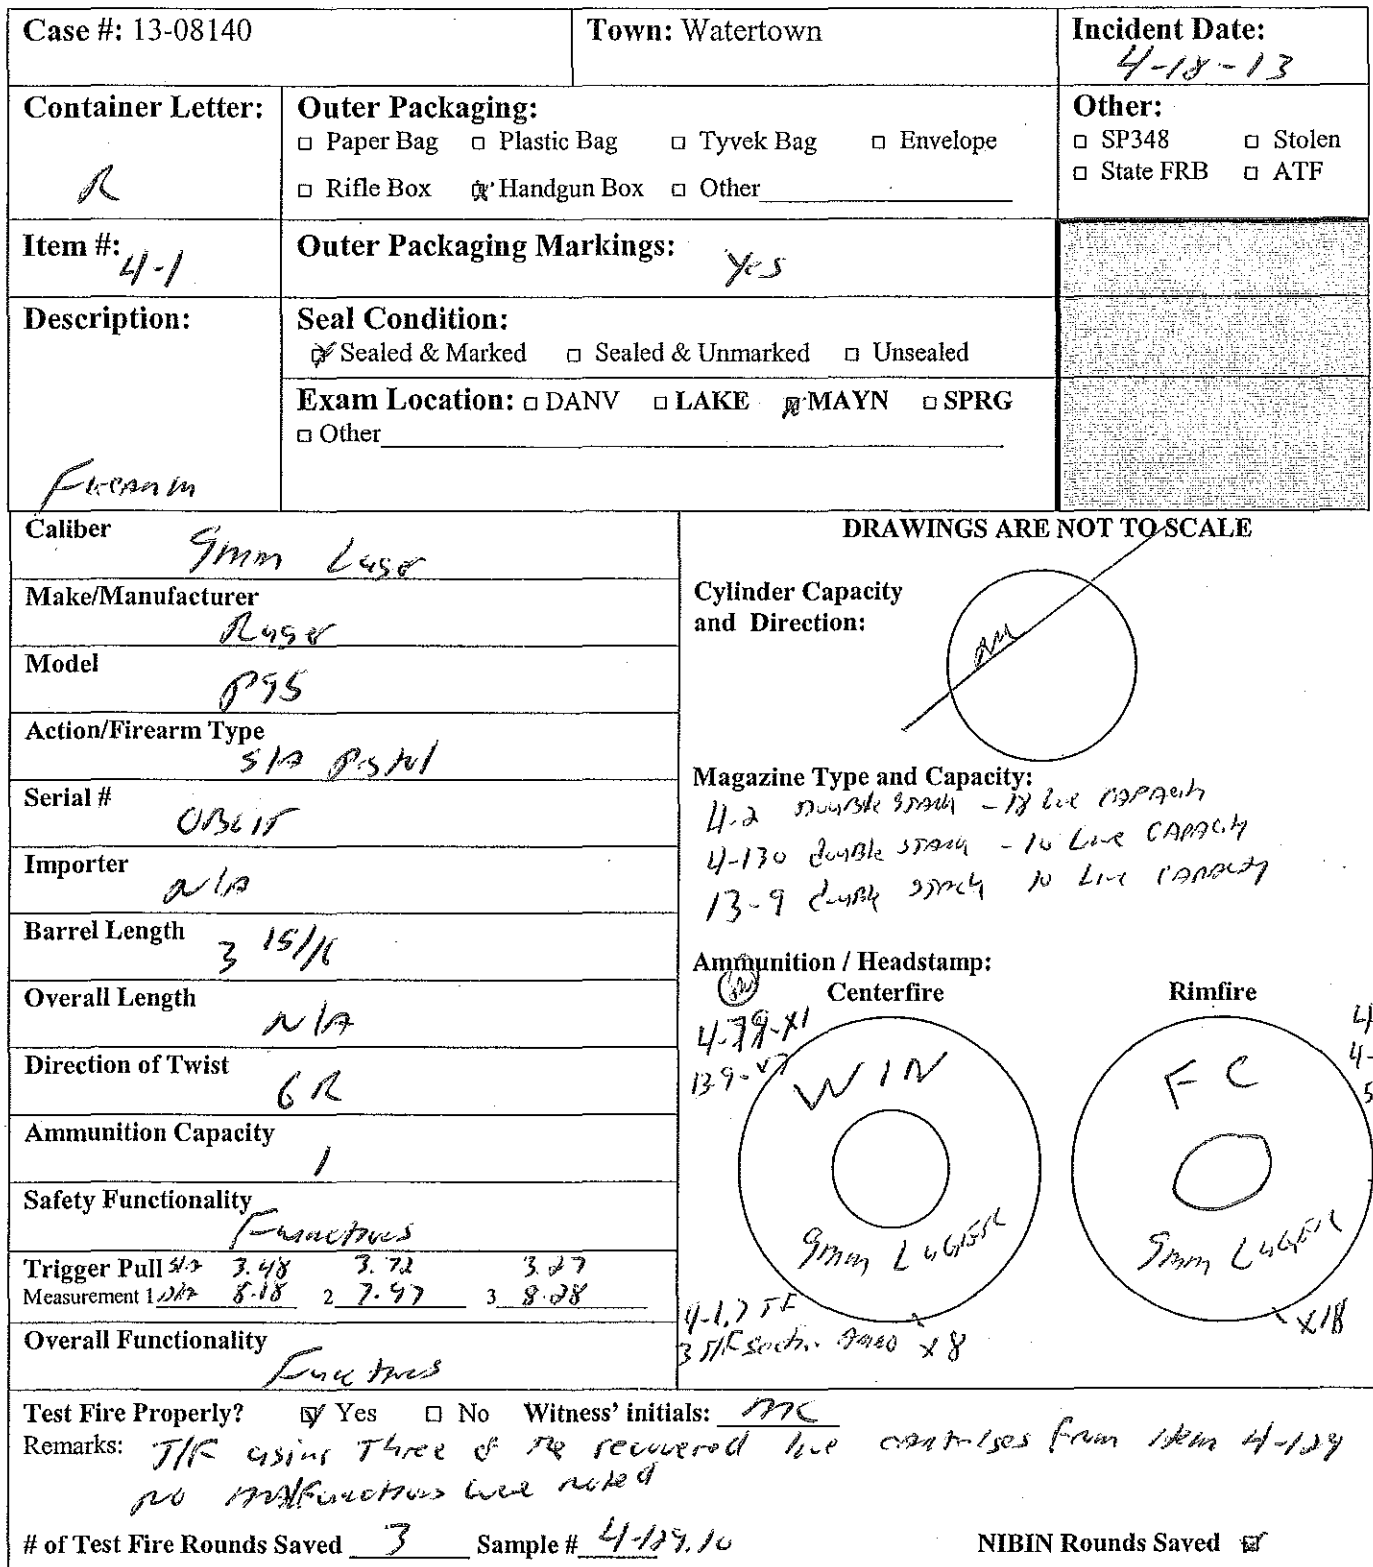 Case #: 13-08140
Town: Watertown
Incident Date:
4-18-13
Container Letter:
R
Outer Packaging:
□ Paper Bag □ Plastic Bag □ Tyvek Bag □ Envelope
□ Rifle Box ☑ Handgun Box □ Other
Other:
□ SP348 □ Stolen
□ State FRB □ ATF
Item #: 4-1
Outer Packaging Markings: Yes
Description:
Firearm
Seal Condition:
☑ Sealed & Marked □ Sealed & Unmarked □ Unsealed
Exam Location: □ DANV □ LAKE ☑ MAYN □ SPRG
□ Other
Caliber
9mm Luger
Make/Manufacturer
Ruger
Model
P95
Action/Firearm Type
S/A Pistol
Serial #
OBLIT
Importer
N/A
Barrel Length 3 15/16
Overall Length
N/A
Direction of Twist
6 R
Ammunition Capacity
1
Safety Functionality
Functions
Trigger Pull S/A 3.48 3.72 3.27
Measurement 1 D/A 8.18 2 7.97 3 8.28
Overall Functionality
Functions
DRAWINGS ARE NOT TO SCALE
Cylinder Capacity
and Direction:
Magazine Type and Capacity:
4-2 Double Stack - Live Capacity
4-130 double stack - 10 Live Capacity
13-9 double stack 10 Live Capacity
Ammunition / Headstamp:
Centerfire
4-79-x1
13-9-
WIN
9mm LUGER
4-1.7 TF
3 T/F Ammo x8
Rimfire
4
4-
5
FC
9mm LUGER
x18
Test Fire Properly? ☑ Yes □ No Witness' initials: MC
Remarks: T/F using Three of the recovered live cartridges from Item 4-129
no malfunctions were noted
# of Test Fire Rounds Saved 3 Sample # 4-129.10
NIBIN Rounds Saved ☑